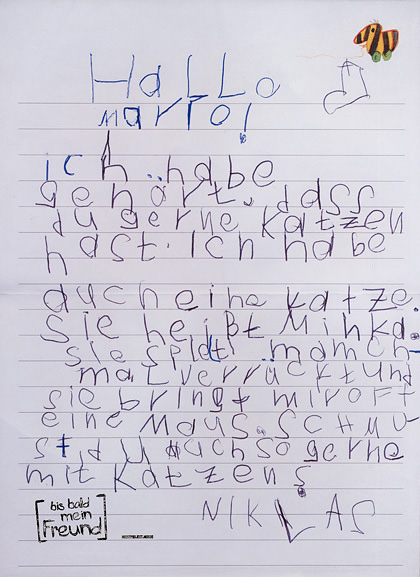 HaLLo
marro!
ich habe
gehört, dass
du gerne Katzen
hast. Ich habe
auch eine Katze.
Sie heißt Minka.
Sie spielt manch-
mal verrückt und
sie bringt mir oft
eine Maus. Schmu-
st du auch so gerne
mit Katzen?
NIKLAS
bis bald
mein
Freund